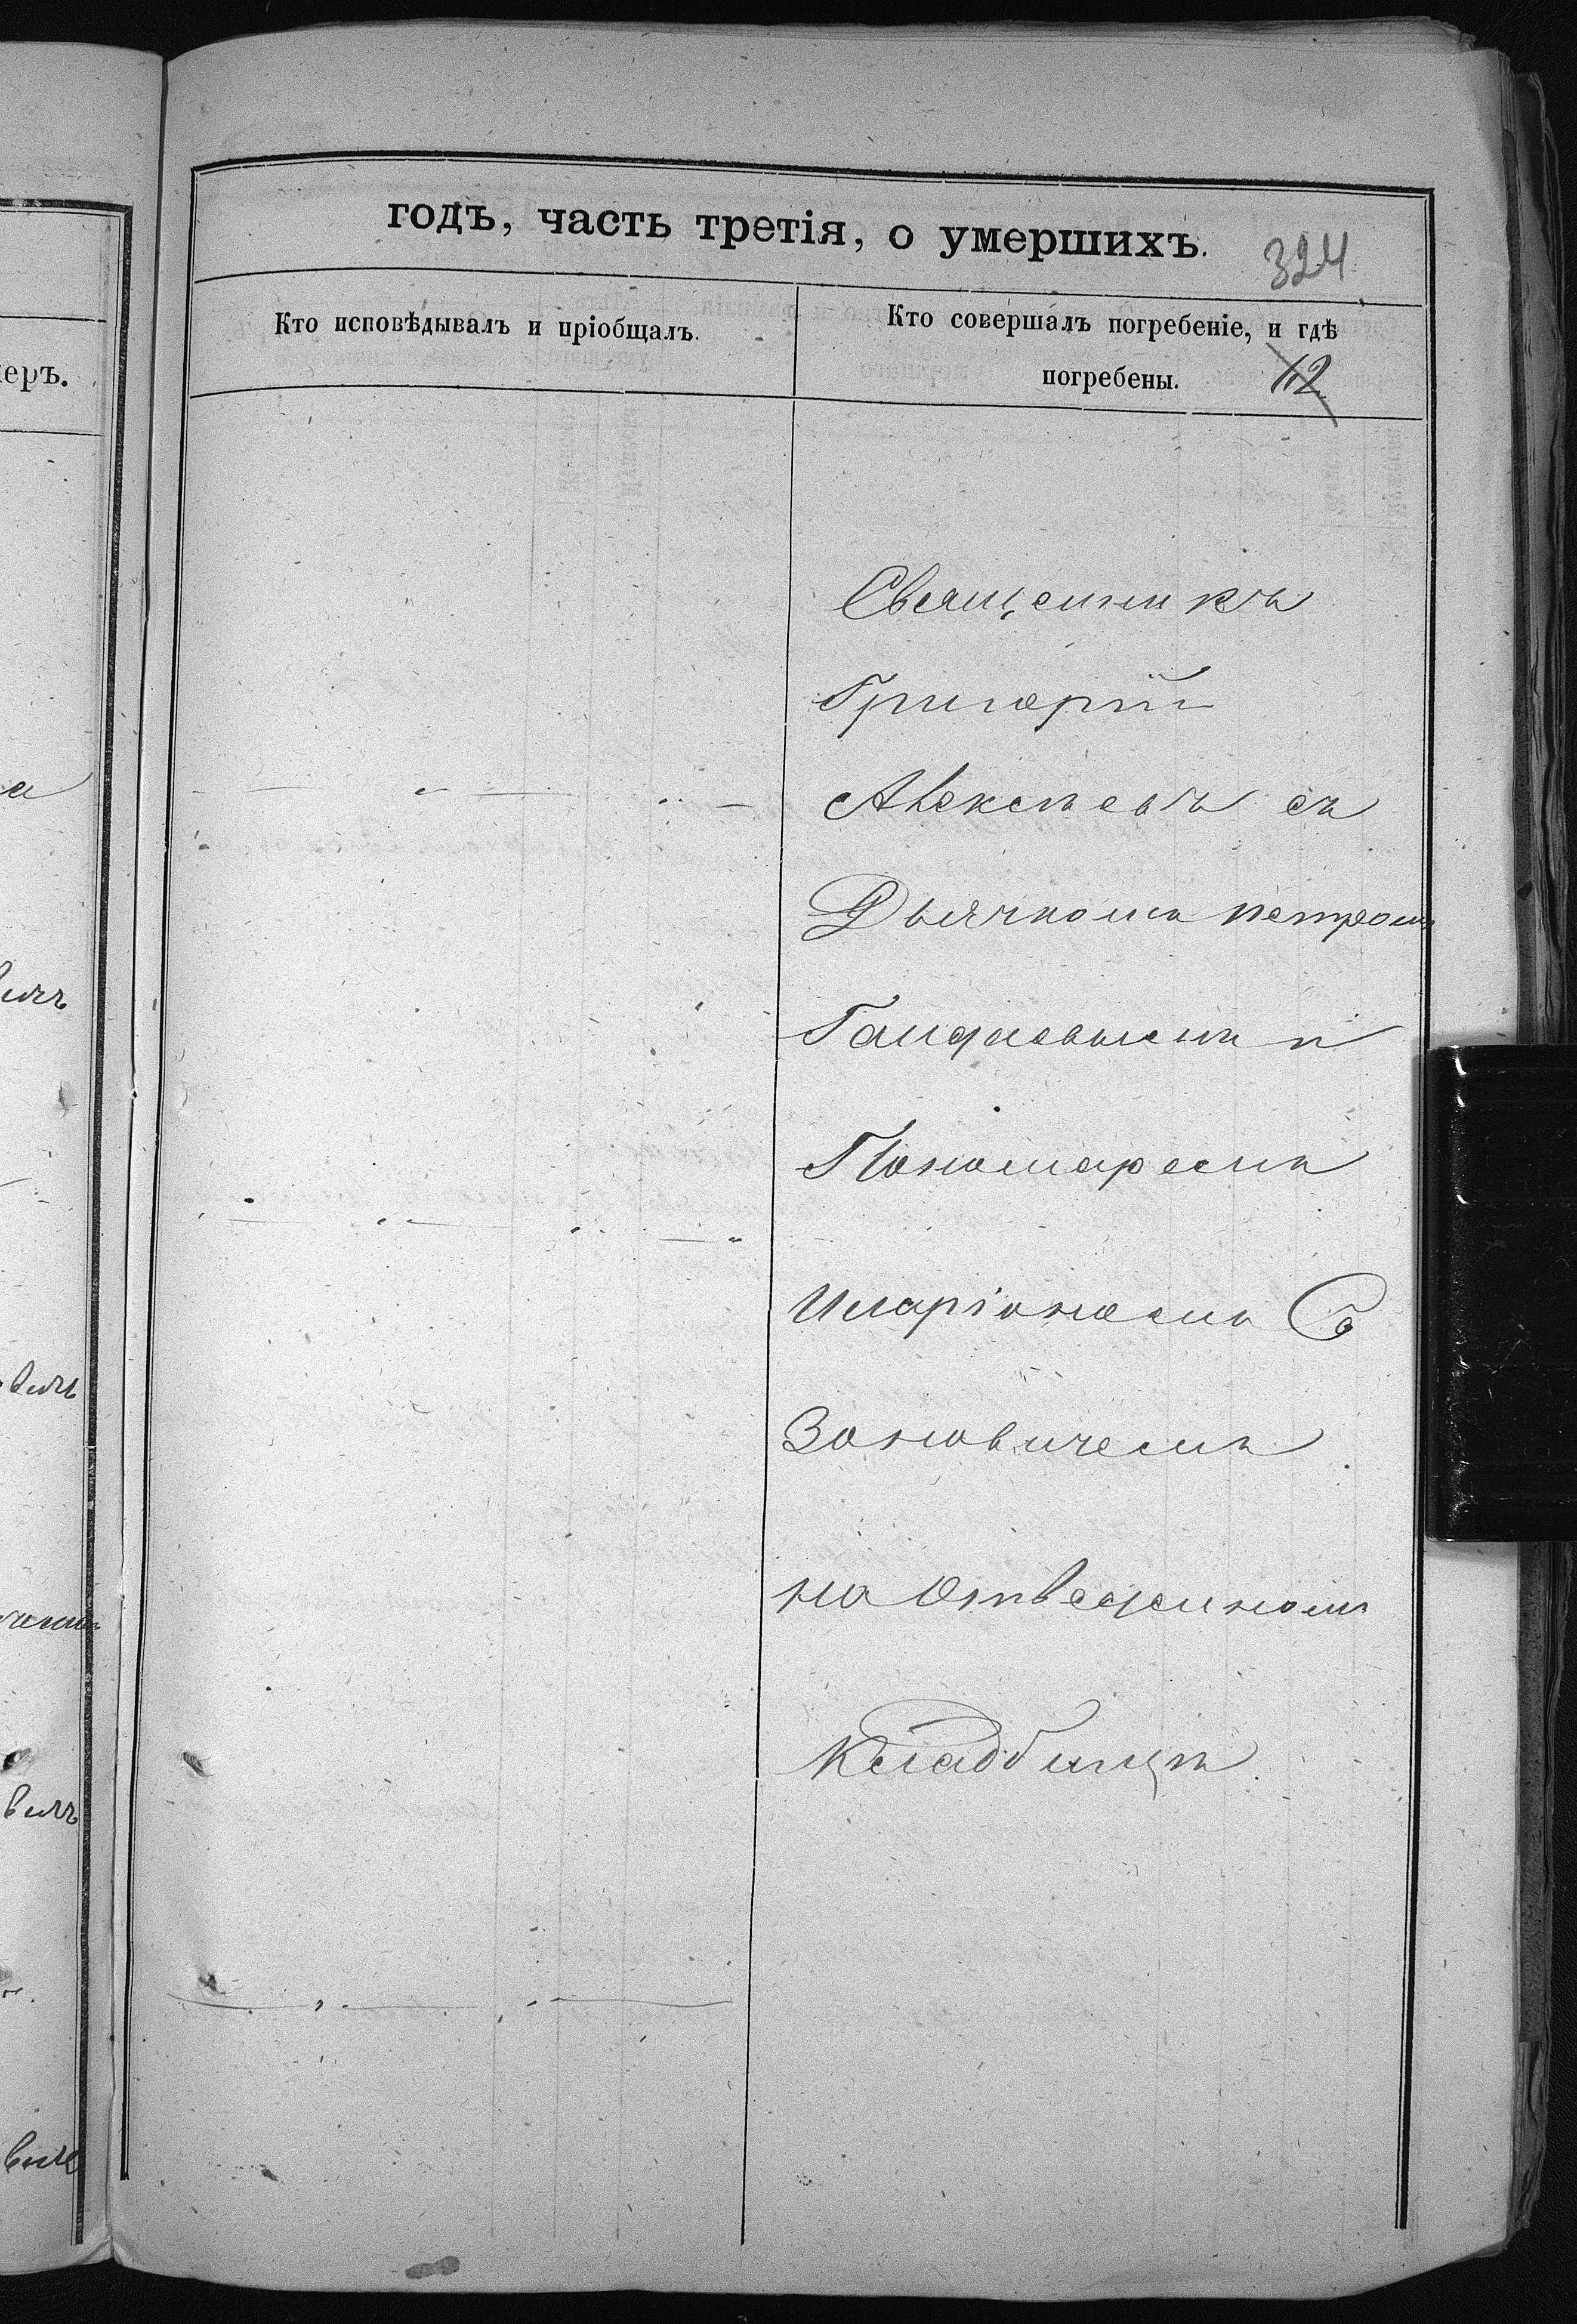 годъ, часть третія, о умершихъ.
324
Кто исповѣдывалъ и пріобщалъ.
Кто совершалъ погребеніе, и гдѣ
погребены.
12
меръ.
Священникъ
Григорій
Алексѣевъ съ
Дьячкомъ петромъ
и
Пономаремъ
Иларіономъ
Зоновичемъ
на отведенномъ
Кладбищѣ